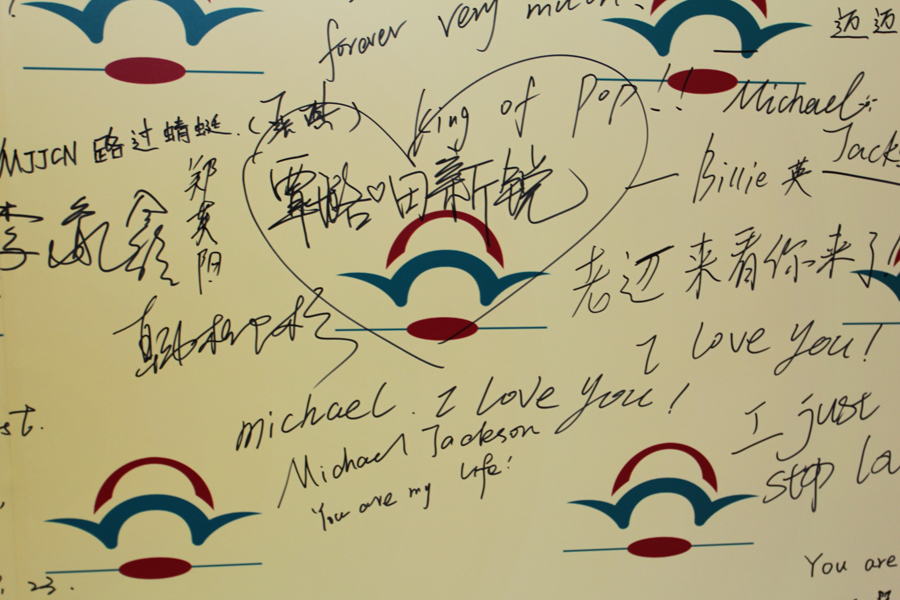 forever very much.
迈迈
king of pop!!
Michael
Jacks
MJJCN 路过蜻蜓.
郑奕阳
覃皓 田新锐
— Billie 英
老迈来看你来了!!
I love you!
michael. I love you!
Michael Jackson
You are my life!
I just
st.
stop lo
You are
23.